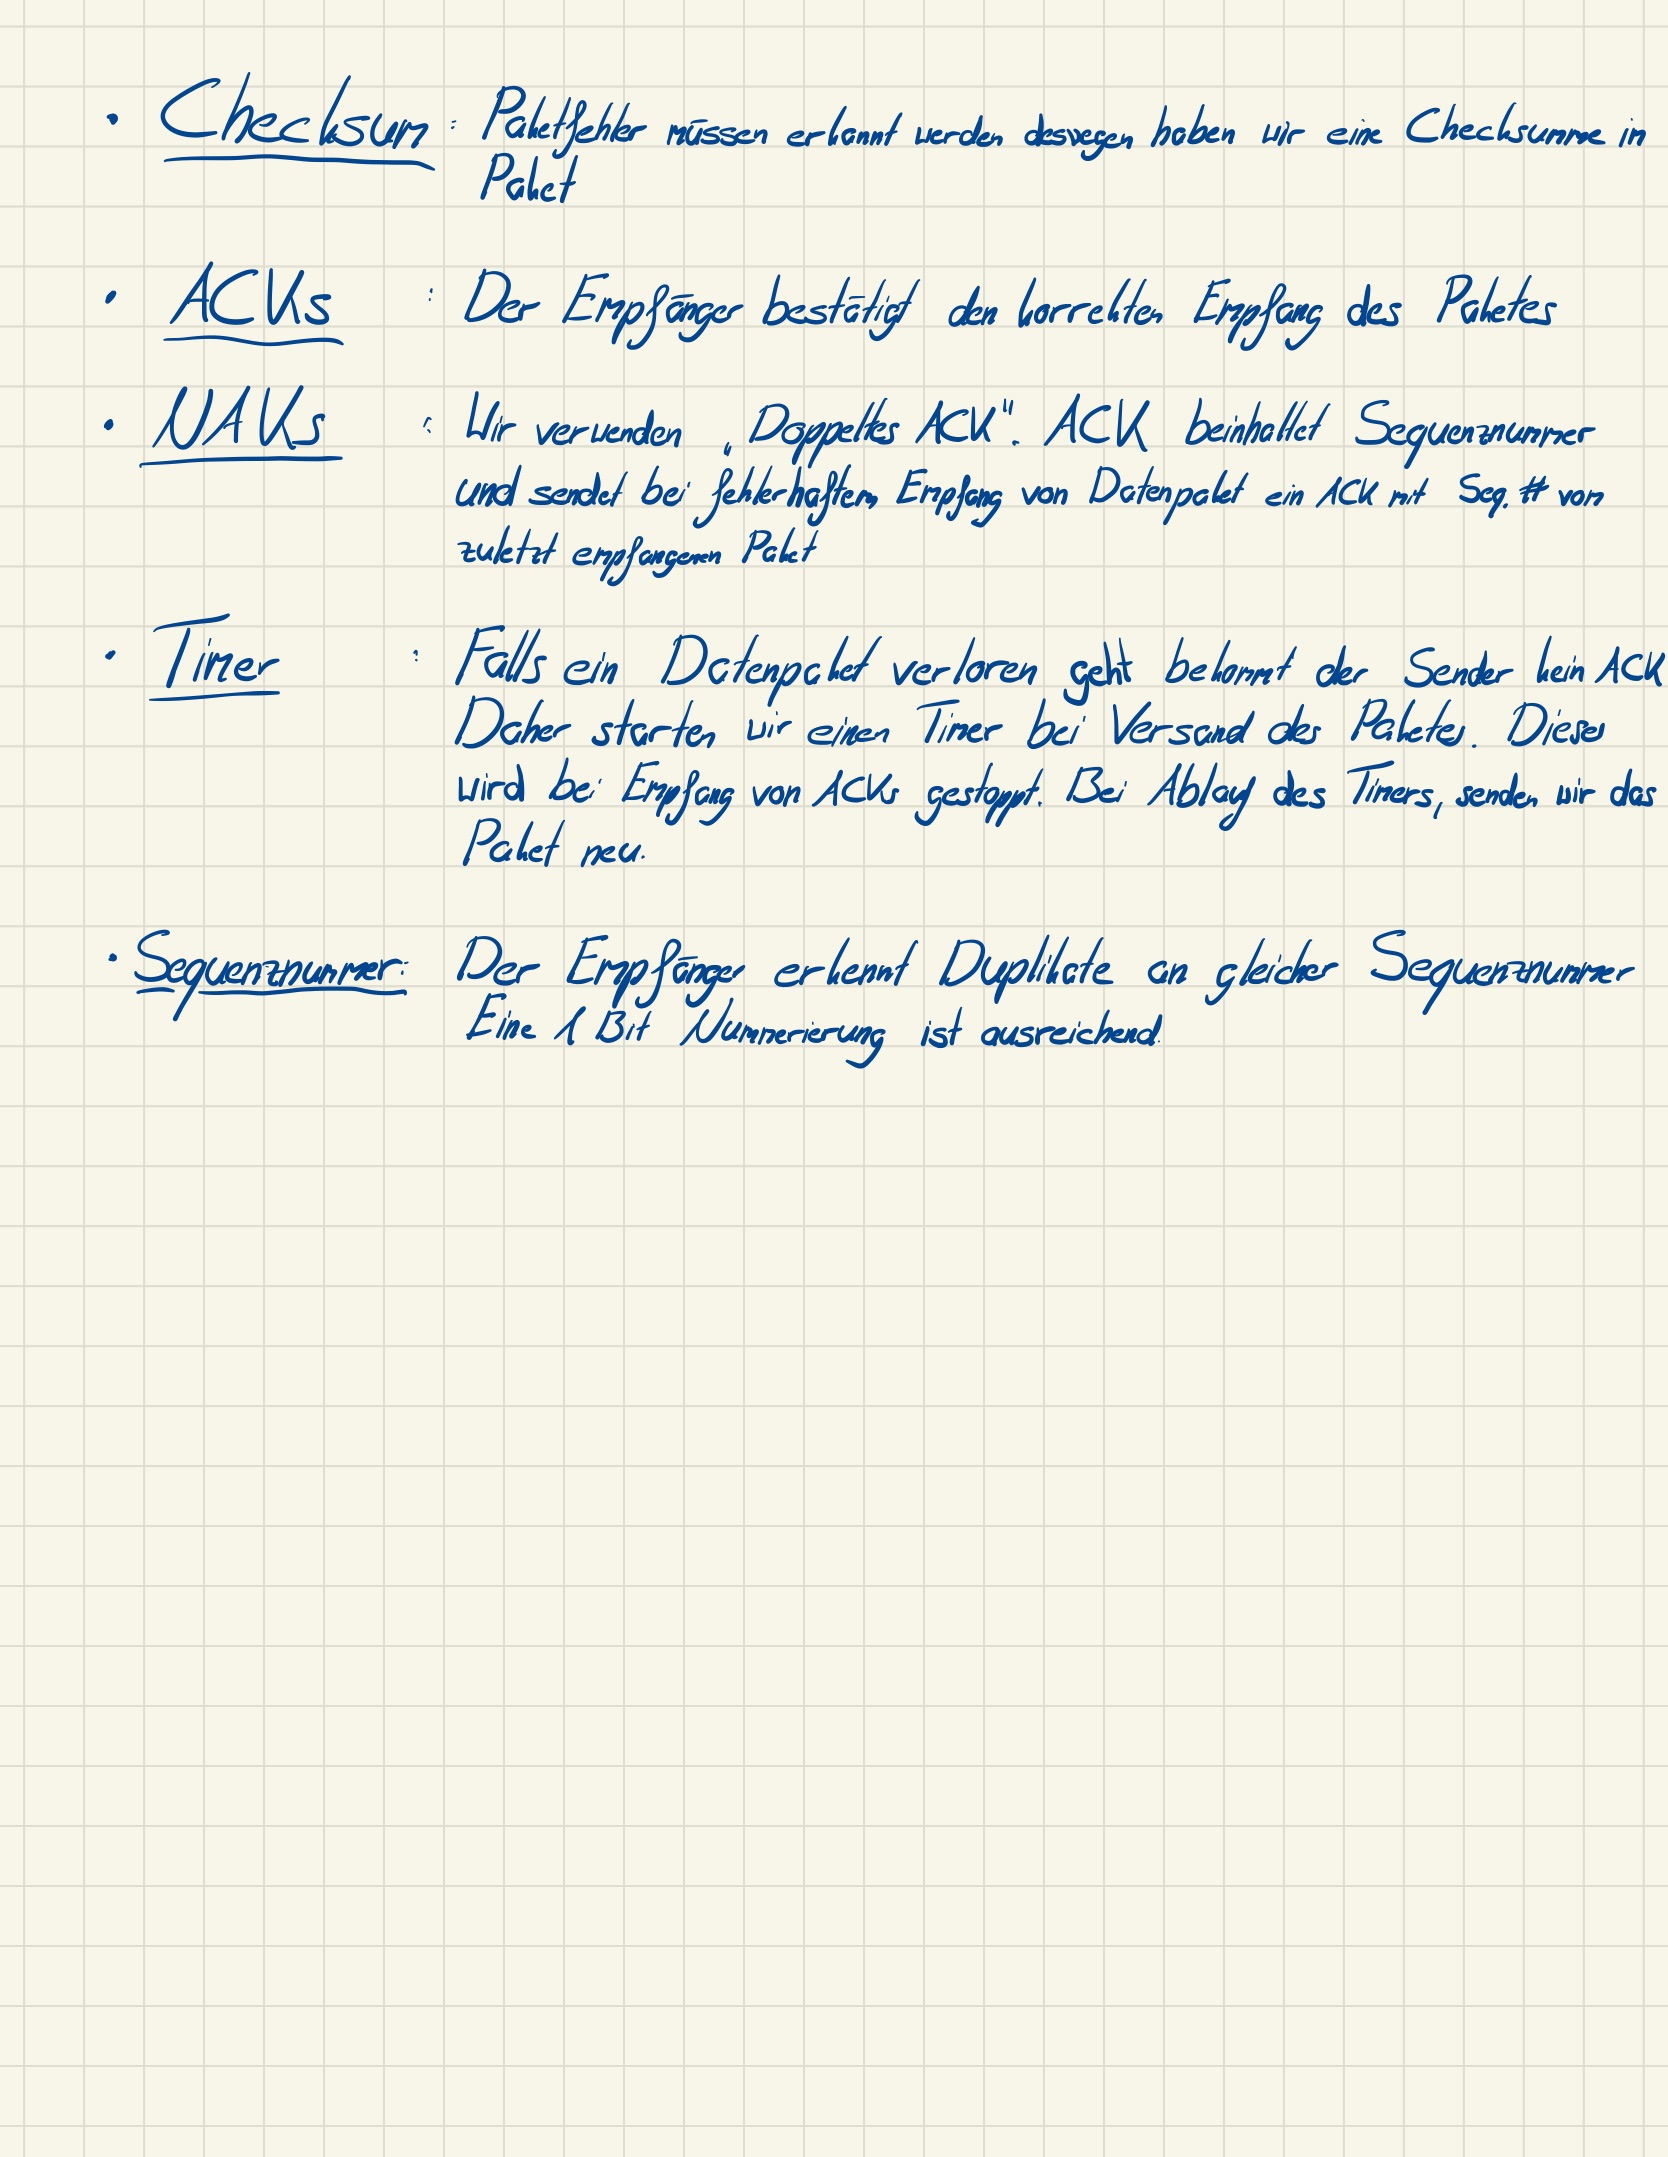 • Checksum : Paketfehler müssen erkannt werden deswegen haben wir eine Checksumme im
Paket
• ACKs : Der Empfänger bestätigt den korrekten Empfang des Paketes
• NAKs : Wir verwenden „Doppeltes ACK". ACK beinhaltet Sequenznummer
und sendet bei fehlerhaftem Empfang von Datenpaket ein ACK mit Seq. # vom
zuletzt empfangenen Paket
• Timer : Falls ein Datenpaket verloren geht bekommt der Sender kein ACK
Daher starten wir einen Timer bei Versand des Paketes. Dieser
wird bei Empfang von ACKs gestoppt. Bei Ablauf des Timers, senden wir das
Paket neu.
• Sequenznummer: Der Empfänger erkennt Duplikate an gleicher Sequenznummer
Eine 1 Bit Nummerierung ist ausreichend.